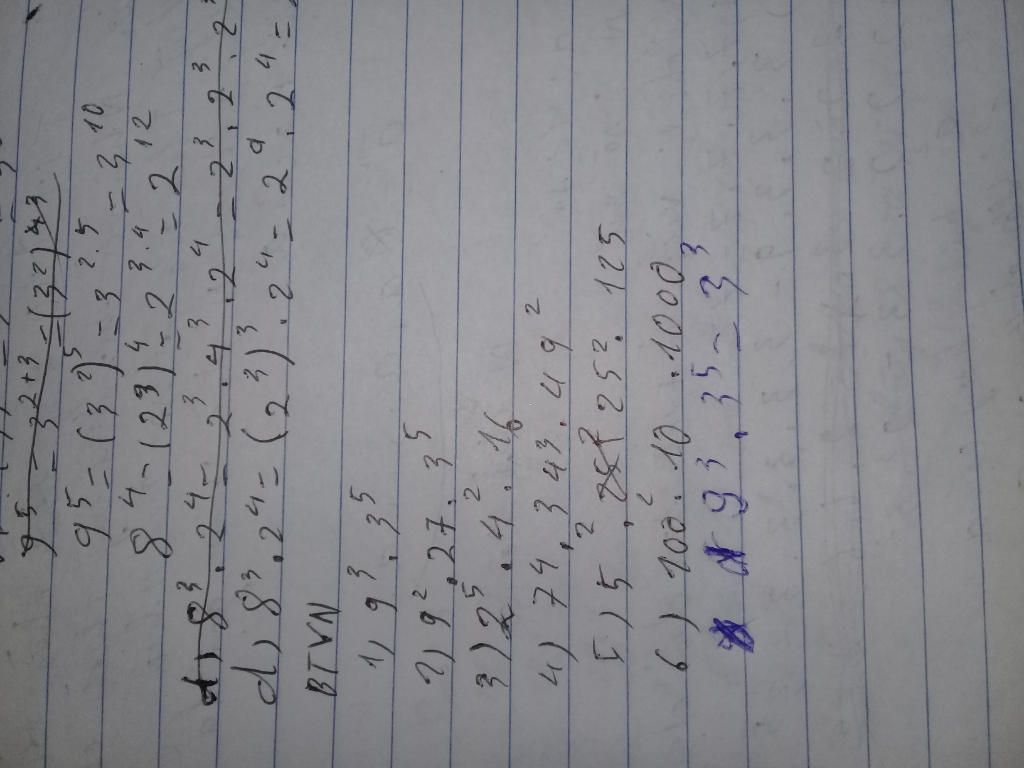 9⁵ = 3²⁺³ = (3²)
9⁵ = (3²)⁵ = 3²·⁵ = 3¹⁰
8⁴ = (2³)⁴ = 2³·⁴ = 2¹²
d) 8³ . 2⁴ = 2³ . 4³ . 2⁴ = 2³ . 2³ . 2
d) 8³ . 2⁴ = (2³)³ . 2⁴ = 2⁹ . 2⁴ =
BTVN
1) 9³ . 3⁵
2) 9² . 27 . 3⁵
3) 2⁵ . 4² . 16
4) 74 . 343 . 49²
5) 5² . 25² . 125
6) 100² . 10 . 1000
9³ . 35 = 3³